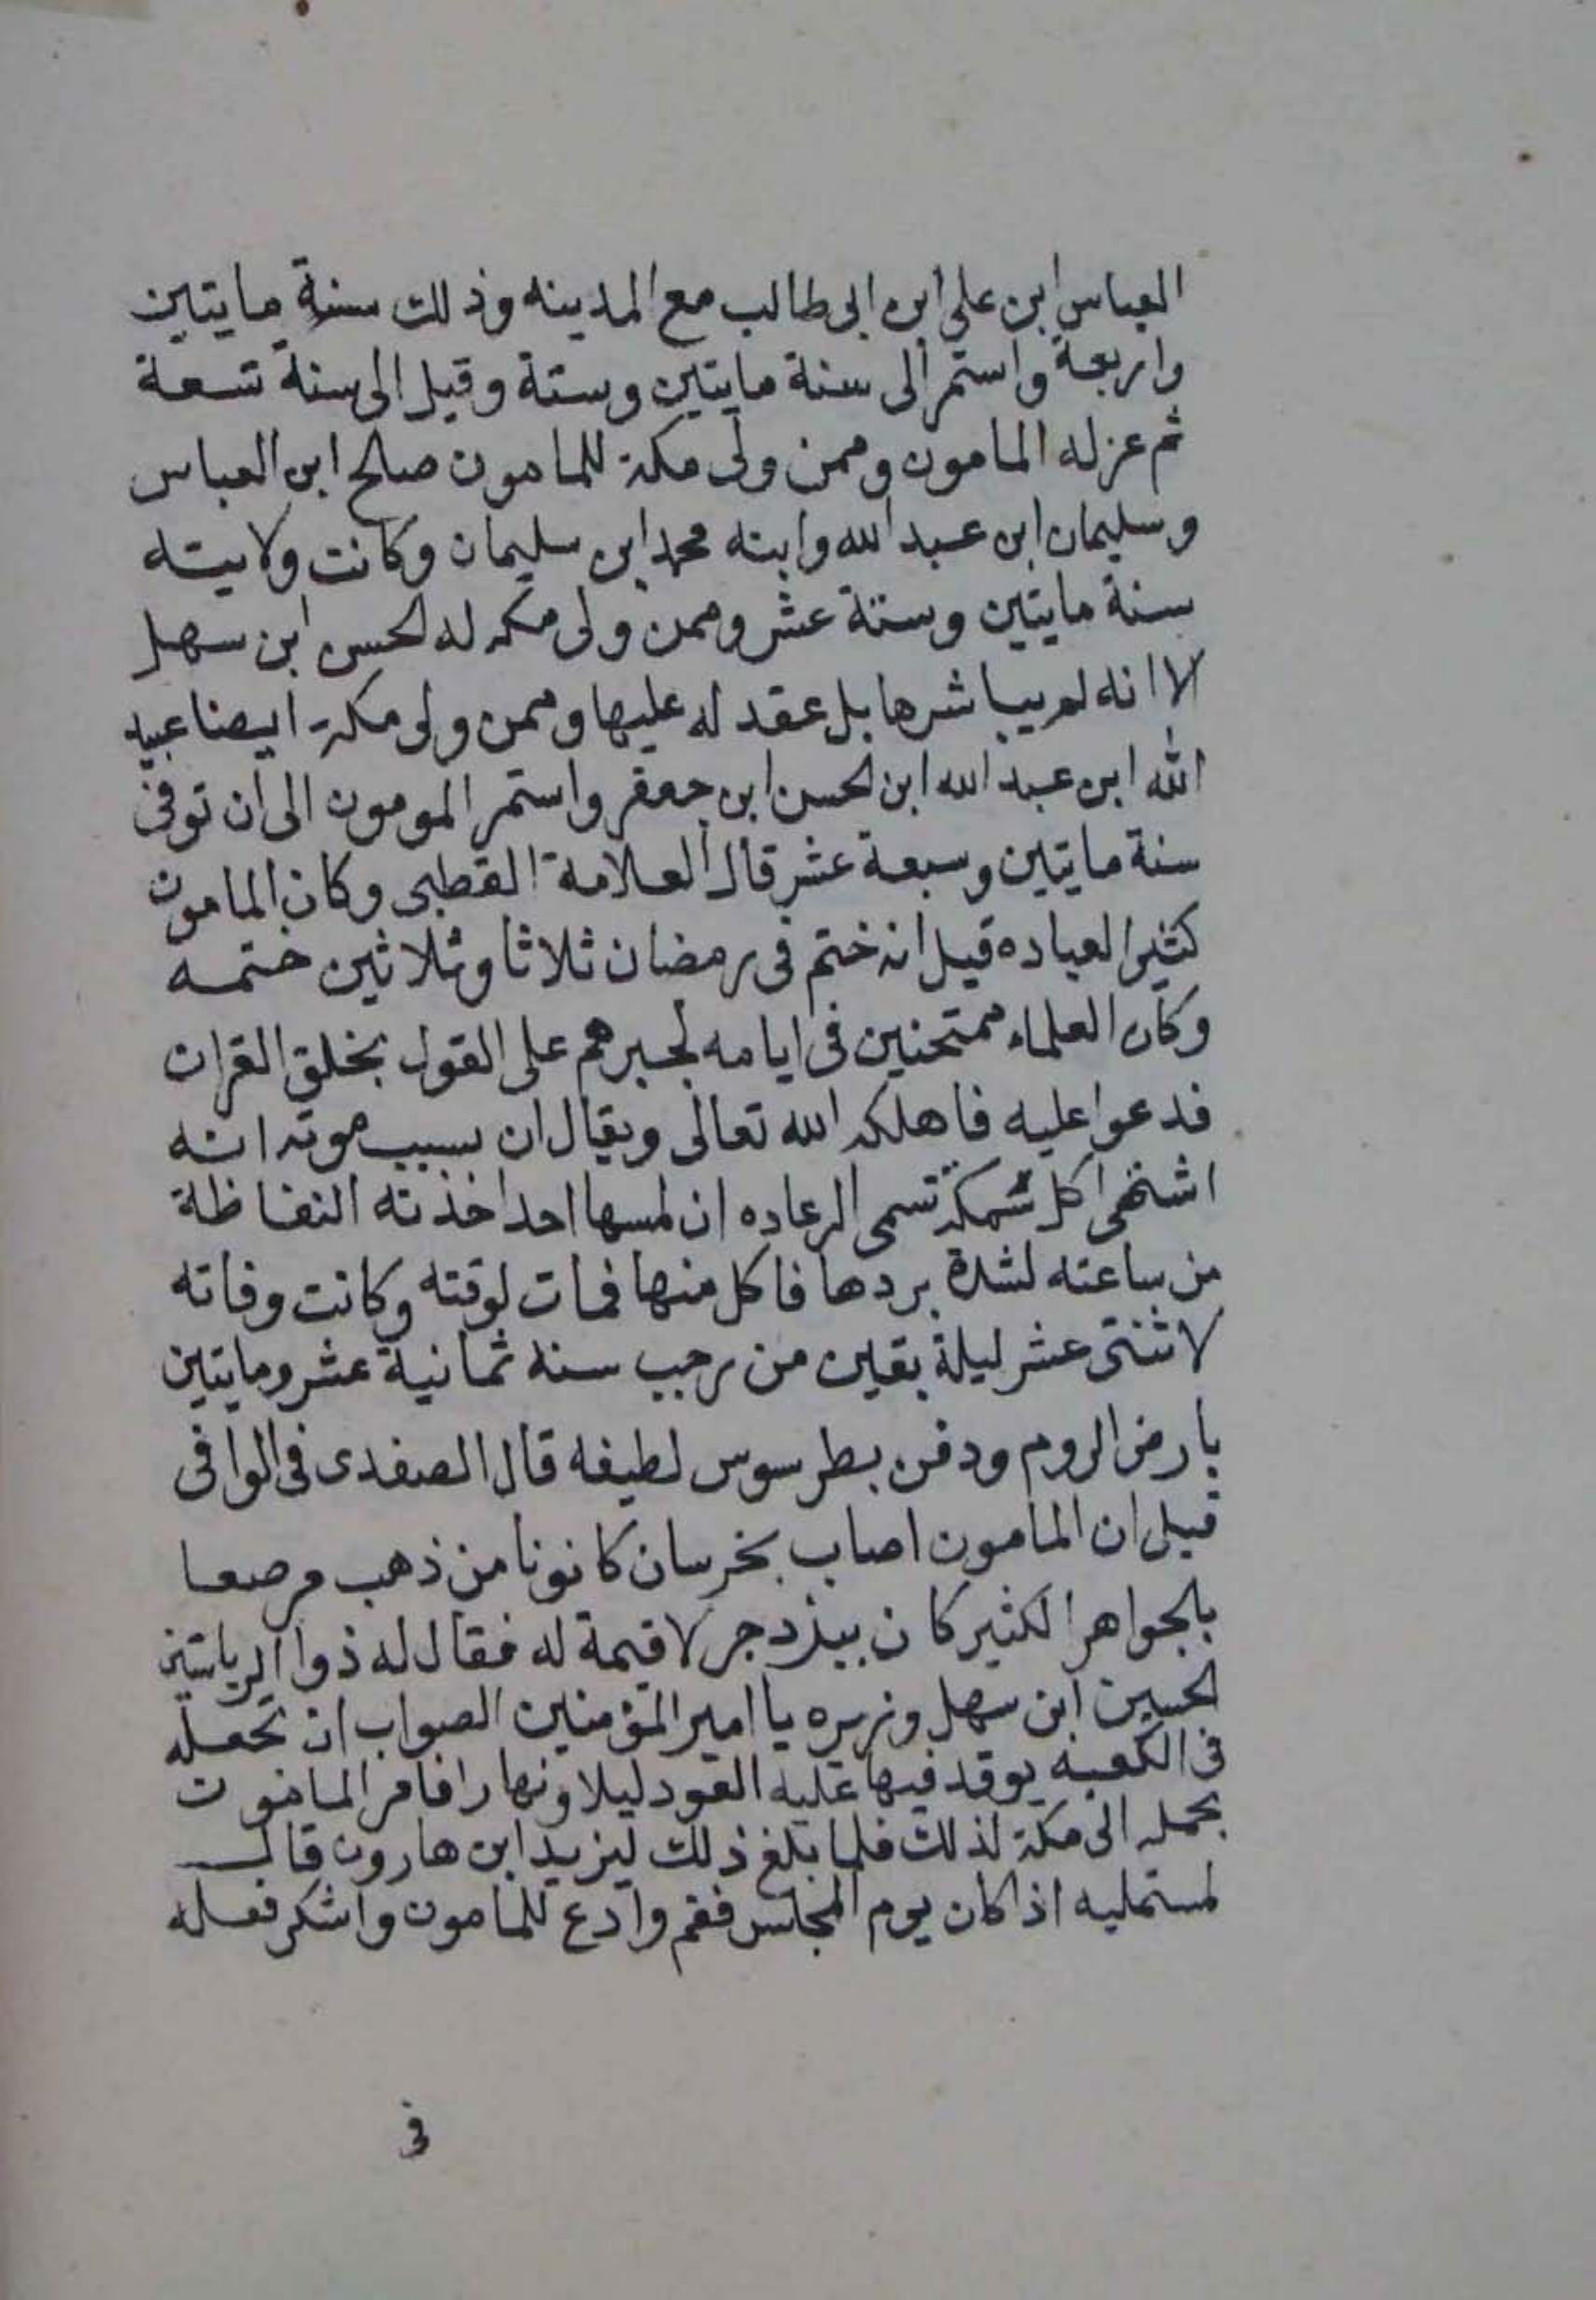 العباس ابن على ابن ابى طالب مع المدينه وذلك سنة مايتين
واربعة واستمر الى سنة مايتين وستة وقيل الى سنة تسعة
ثم عزله المامون وممن ولى مكة للمامون صالح ابن العباس
وسليمان ابن عبد الله وابنه محمد ابن سليمان وكانت ولايته
سنة مايتين وستة عشر وممن ولى مكه له الحسن ابن سهل
الا انه لم يباشرها بل عقد له عليها وممن ولى مكة ايضا عبيد
الله ابن عبد الله ابن الحسن ابن جعفر واستمر المومون الى ان توفى
سنة مايتين وسبعة عشر قال العلامة القطبى وكان المامون
كثير العباده قيل انه ختم فى رمضان ثلاثا وثلاثين ختمه
وكان العلماء ممتحنين فى ايامه لجبرهم على القول بخلق القران
فدعوا عليه فاهلكه الله تعالى ويقال ان سبب موته انه
اشتهى اكل سمكة تسمى الرعاده ان لمسها احد اخذته النفاظة
من ساعته لشدة بردها فاكل منها فمات لوقته وكانت وفاته
لاثنتى عشر ليلة بقين من رجب سنه ثمانية عشر ومايتين
بارض الروم ودفن بطرسوس لطيفه قال الصفدى فى الوافى
قيل ان المامون اصاب بخرسان كانونا من ذهب مرصعا
بالجواهر الكثير كان بيزدجر لا قيمة له فقال له ذوا الرياستين
الحسين ابن سهل وزيره يا امير المؤمنين الصواب ان تجعله
فى الكعبه يوقد فيها عليه العود ليلا ونهارا فامر المامون
بحمله الى مكة لذلك فلما بلغ ذلك ليزيد ابن هارون قال
لمستمليه اذا كان يوم المجلس فقم وادع للمامون واشكر فعله
فى